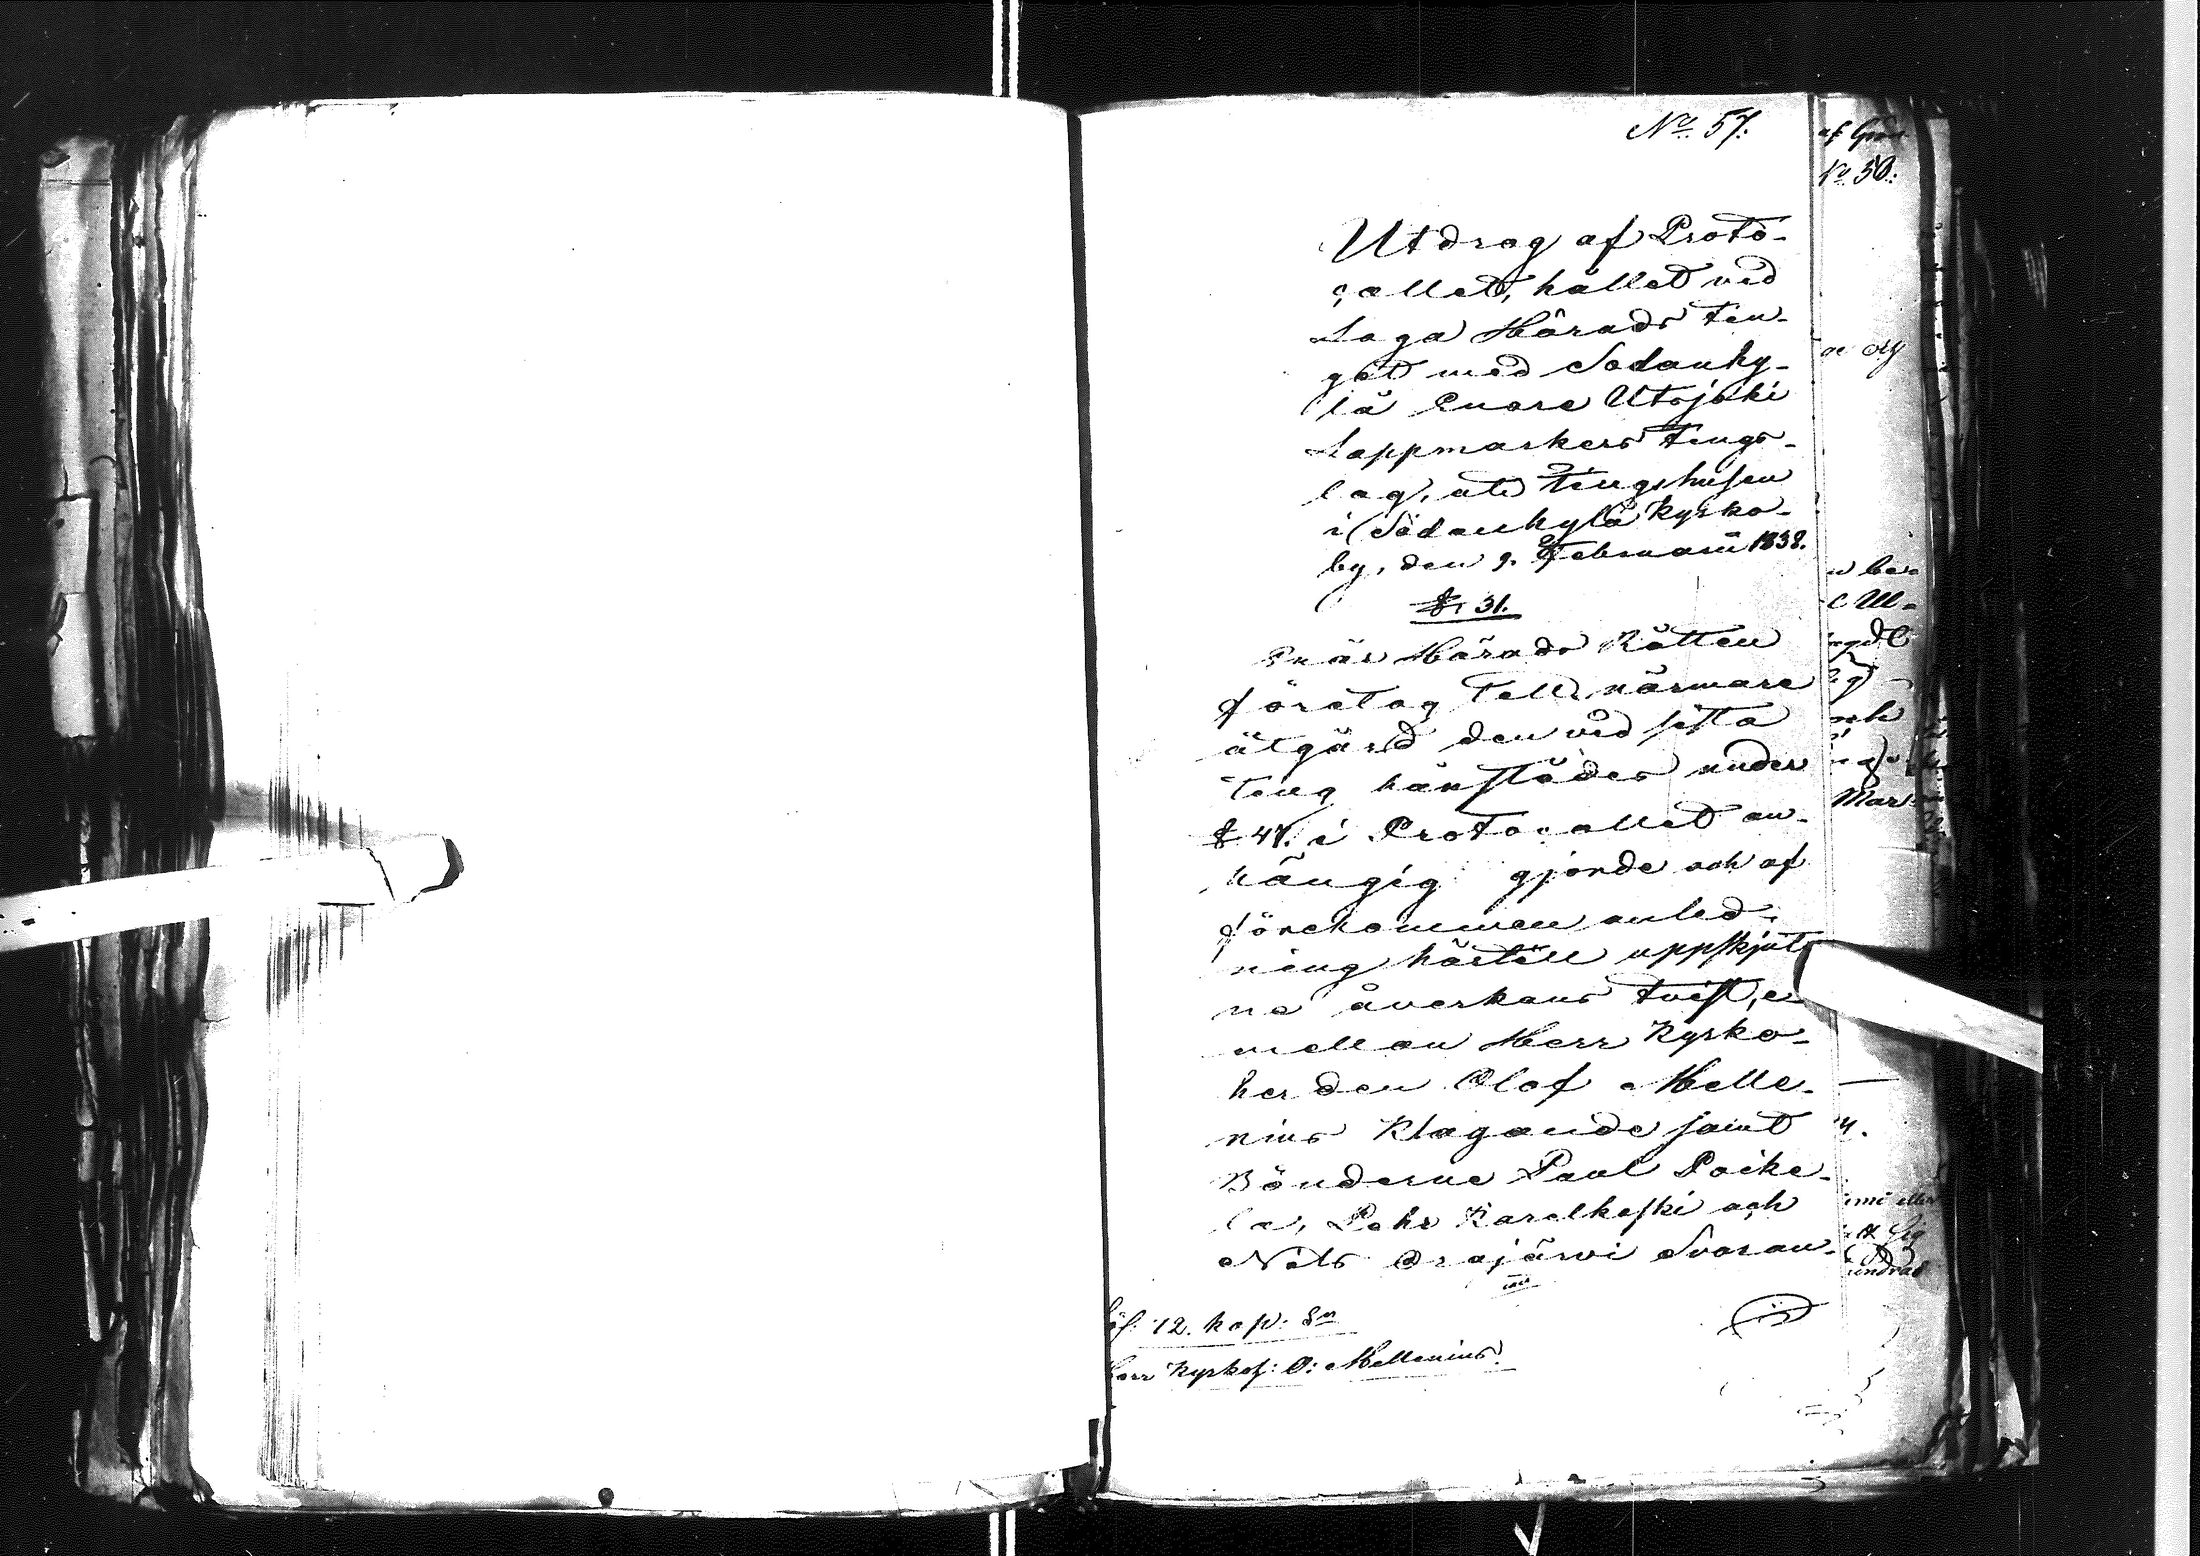 No 57.
Utdrag af Proto-
collet, hållet vid
Laga Härads tin-
get med Sodanky-
lä Enare Utsjoki
Lappmarkers tings-
lag, uti tingshusen
i Sodankylä Kyrko-
by, den 9. Februarii 1838.
§ 31.
Härads Rätten
företog till närmare
åtgärd den vid sista
ting härstädes under
§ 47. i Protocollet an-
hängig gjorde och af
förekommen anled-
ning härtill uppskjut-
na åverkans tvist, e-
mellan Herr Kyrko-
herden Olof Melle-
nius Klagande samt
Bönderne Paul Poike-
la, Pehr Karelkeski och
Nils Orajärvi Svaran-
12. kop. Sr
Herr Kyrkoh: O: Mellenius.
af
No 50.
Mar